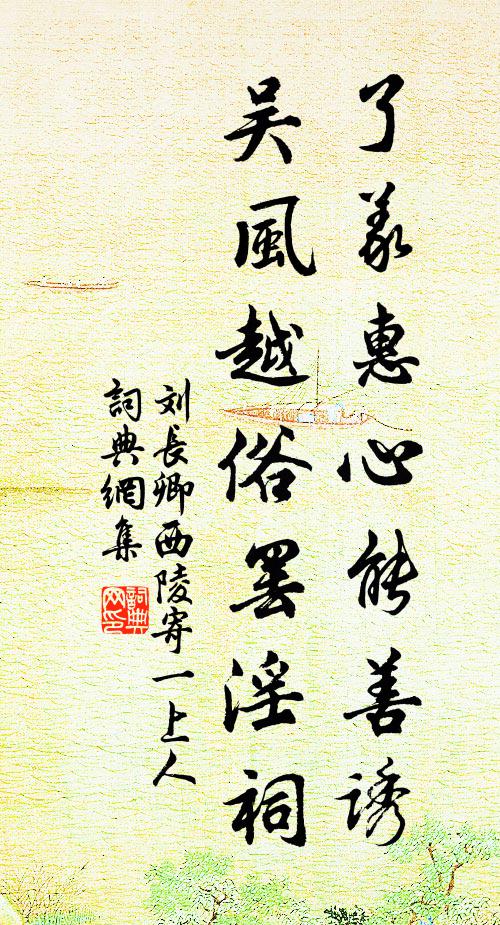 了義惠心能善誘
吳風越俗罢淫祠
刘長卿西陵寄一上人
詞典網集
詞典
网印